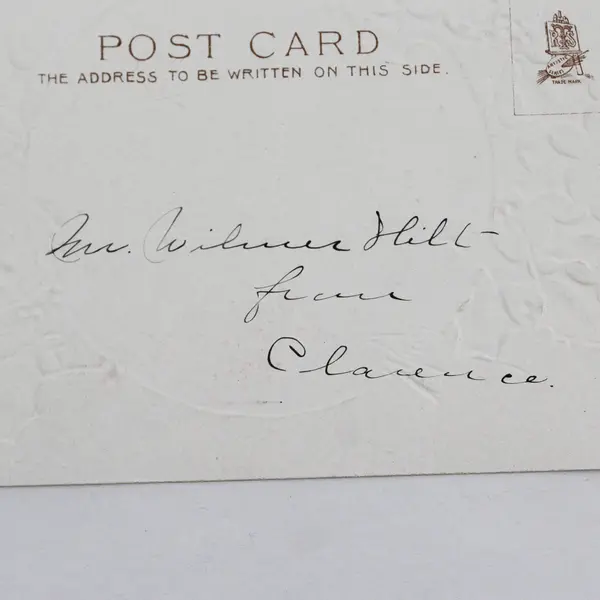 POST CARD
THE ADDRESS TO BE WRITTEN ON THIS SIDE.
ARTISTIC SERIES
TRADE MARK
Mr. Wilmer Hilt
from
Clarence.